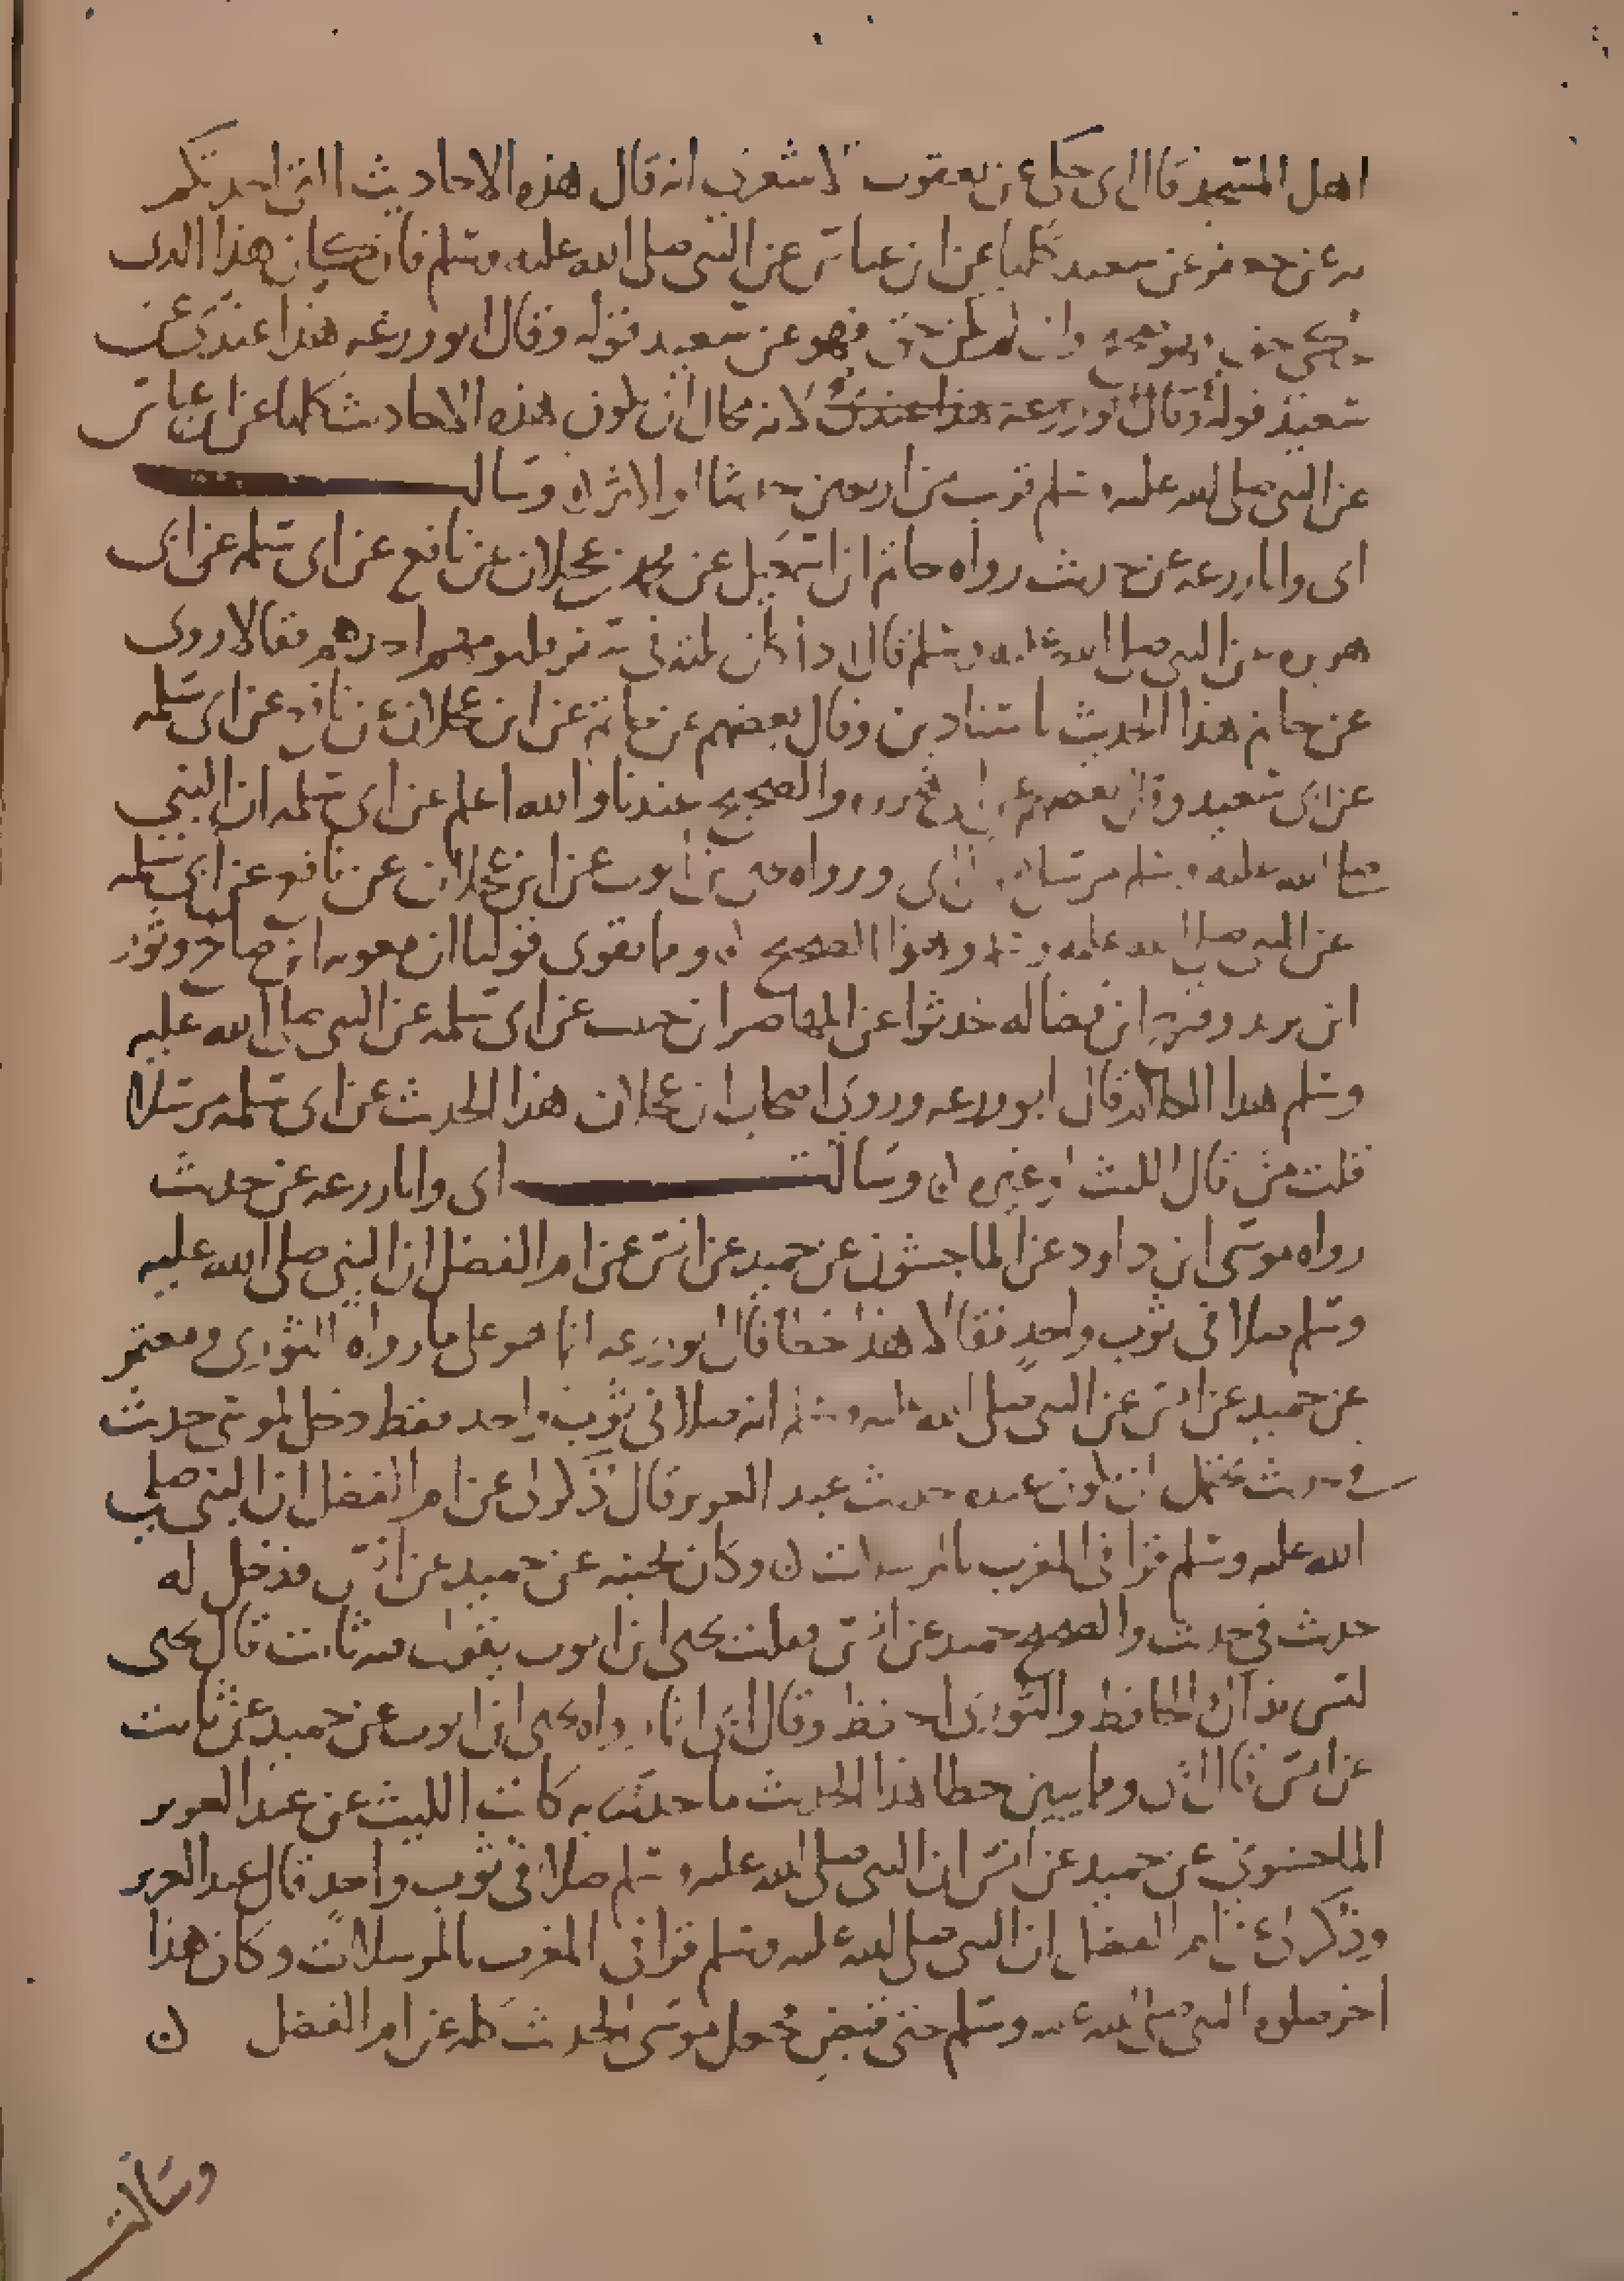 اهل المسجد قال ابي حكي عن يعقوب الاشعري انه قال هذه الاحاديث التي احدثكم
به عن جعفر عن سعيد كلها عن ابن عباس عن النبي صلى الله عليه وسلم فان كان هذا الذي
حكي حق فهو صحيح وان لم يكن حق فهو عن سعيد قوله وقال ابو زرعه هذا عندي عن
سعيد قوله وقال ابو زرعه هذا عندي لانه محال ان يكون هذه الاحاديث كلها عن ابن عباس
عن النبي صلى الله عليه وسلم قريب من اربعين حديثا او اكثر ن وسالت
ابي وابا زرعه عن حديث رواه حاتم ابن اسمعيل عن محمد بن عجلان عن نافع عن ابي سلمه عن ابي
هريره عن النبي صلى الله عليه وسلم قال اذا كان ثلثه في سفر فليومهم احدهم فقالا روى
عن حاتم هذا الحديث باسنادين وقال بعضهم عن حاتم عن ابن عجلان عن نافع عن ابي سلمه
عن ابي سعيد وقال بعضهم عن ابي هريره والصحيح عندنا والله اعلم عن ابي سلمه ان النبي
صلى الله عليه وسلم مرسل قال ابي ورواه يحيى بن ايوب عن ابن عجلان عن نافع عن ابي سلمه
عن النبي صلى الله عليه وسلم وهذا الصحيح ن ومما يقوي قولنا ان معويه ابن صالح وثور
ابن يزيد وفرج ابن فضاله حدثوا عن المهاصر ابن حبيب عن ابي سلمه عن النبي صلى الله عليه
وسلم هذا الكلام قال ابو زرعه وروى اصحاب ابن عجلان هذا الحديث عن ابي سلمه مرسلا
قلت من قال الليث او غيره ن وسالت ابي وابا زرعه عن حديث
رواه موسى ابن داود عن الماجشون عن حميد عن انس عن ام الفضل ان النبي صلى الله عليه
وسلم صلا في ثوب واحد فقالا هذا خطا قال ابو زرعه انما هو على ما رواه الثوري ومعتمر
عن حميد عن انس عن النبي صلى الله عليه وسلم انه صلا في ثوب واحد فقط دخل لموسى حديث
في حديث يحتمل ان يكون عنده حديث عبد العزيز قال ذكر لي عن ام الفضل ان النبي صلى
الله عليه وسلم قرا في المغرب بالمرسلات ن وكان بجنبه عن حميد عن انس فدخل له
حديث في حديث والصحيح حميد عن انس فقلت يحيى ابن ايوب يقول فيه ثابت قال يحيى
ليس بذاك الحافظ والثوري احفظ وقال ابي انما رواه يحيى ابن ايوب عن حميد عن ثابت
عن انس قال ابي ومما يبين خطا هذا الحديث ما حدثنا به كاتب الليث عن عبد العزيز
الماجشون عن حميد عن انس ان النبي صلى الله عليه وسلم صلا في ثوب واحد قال عبد العزيز
وذكر لي عن ام الفضل ان النبي صلى الله عليه وسلم قرا في المغرب بالمرسلات وكان هذا
اخر صلوه النبي صلى الله عليه وسلم حتى قبض فجعل موسى الحديث كله عن ام الفضل ن
وسالت